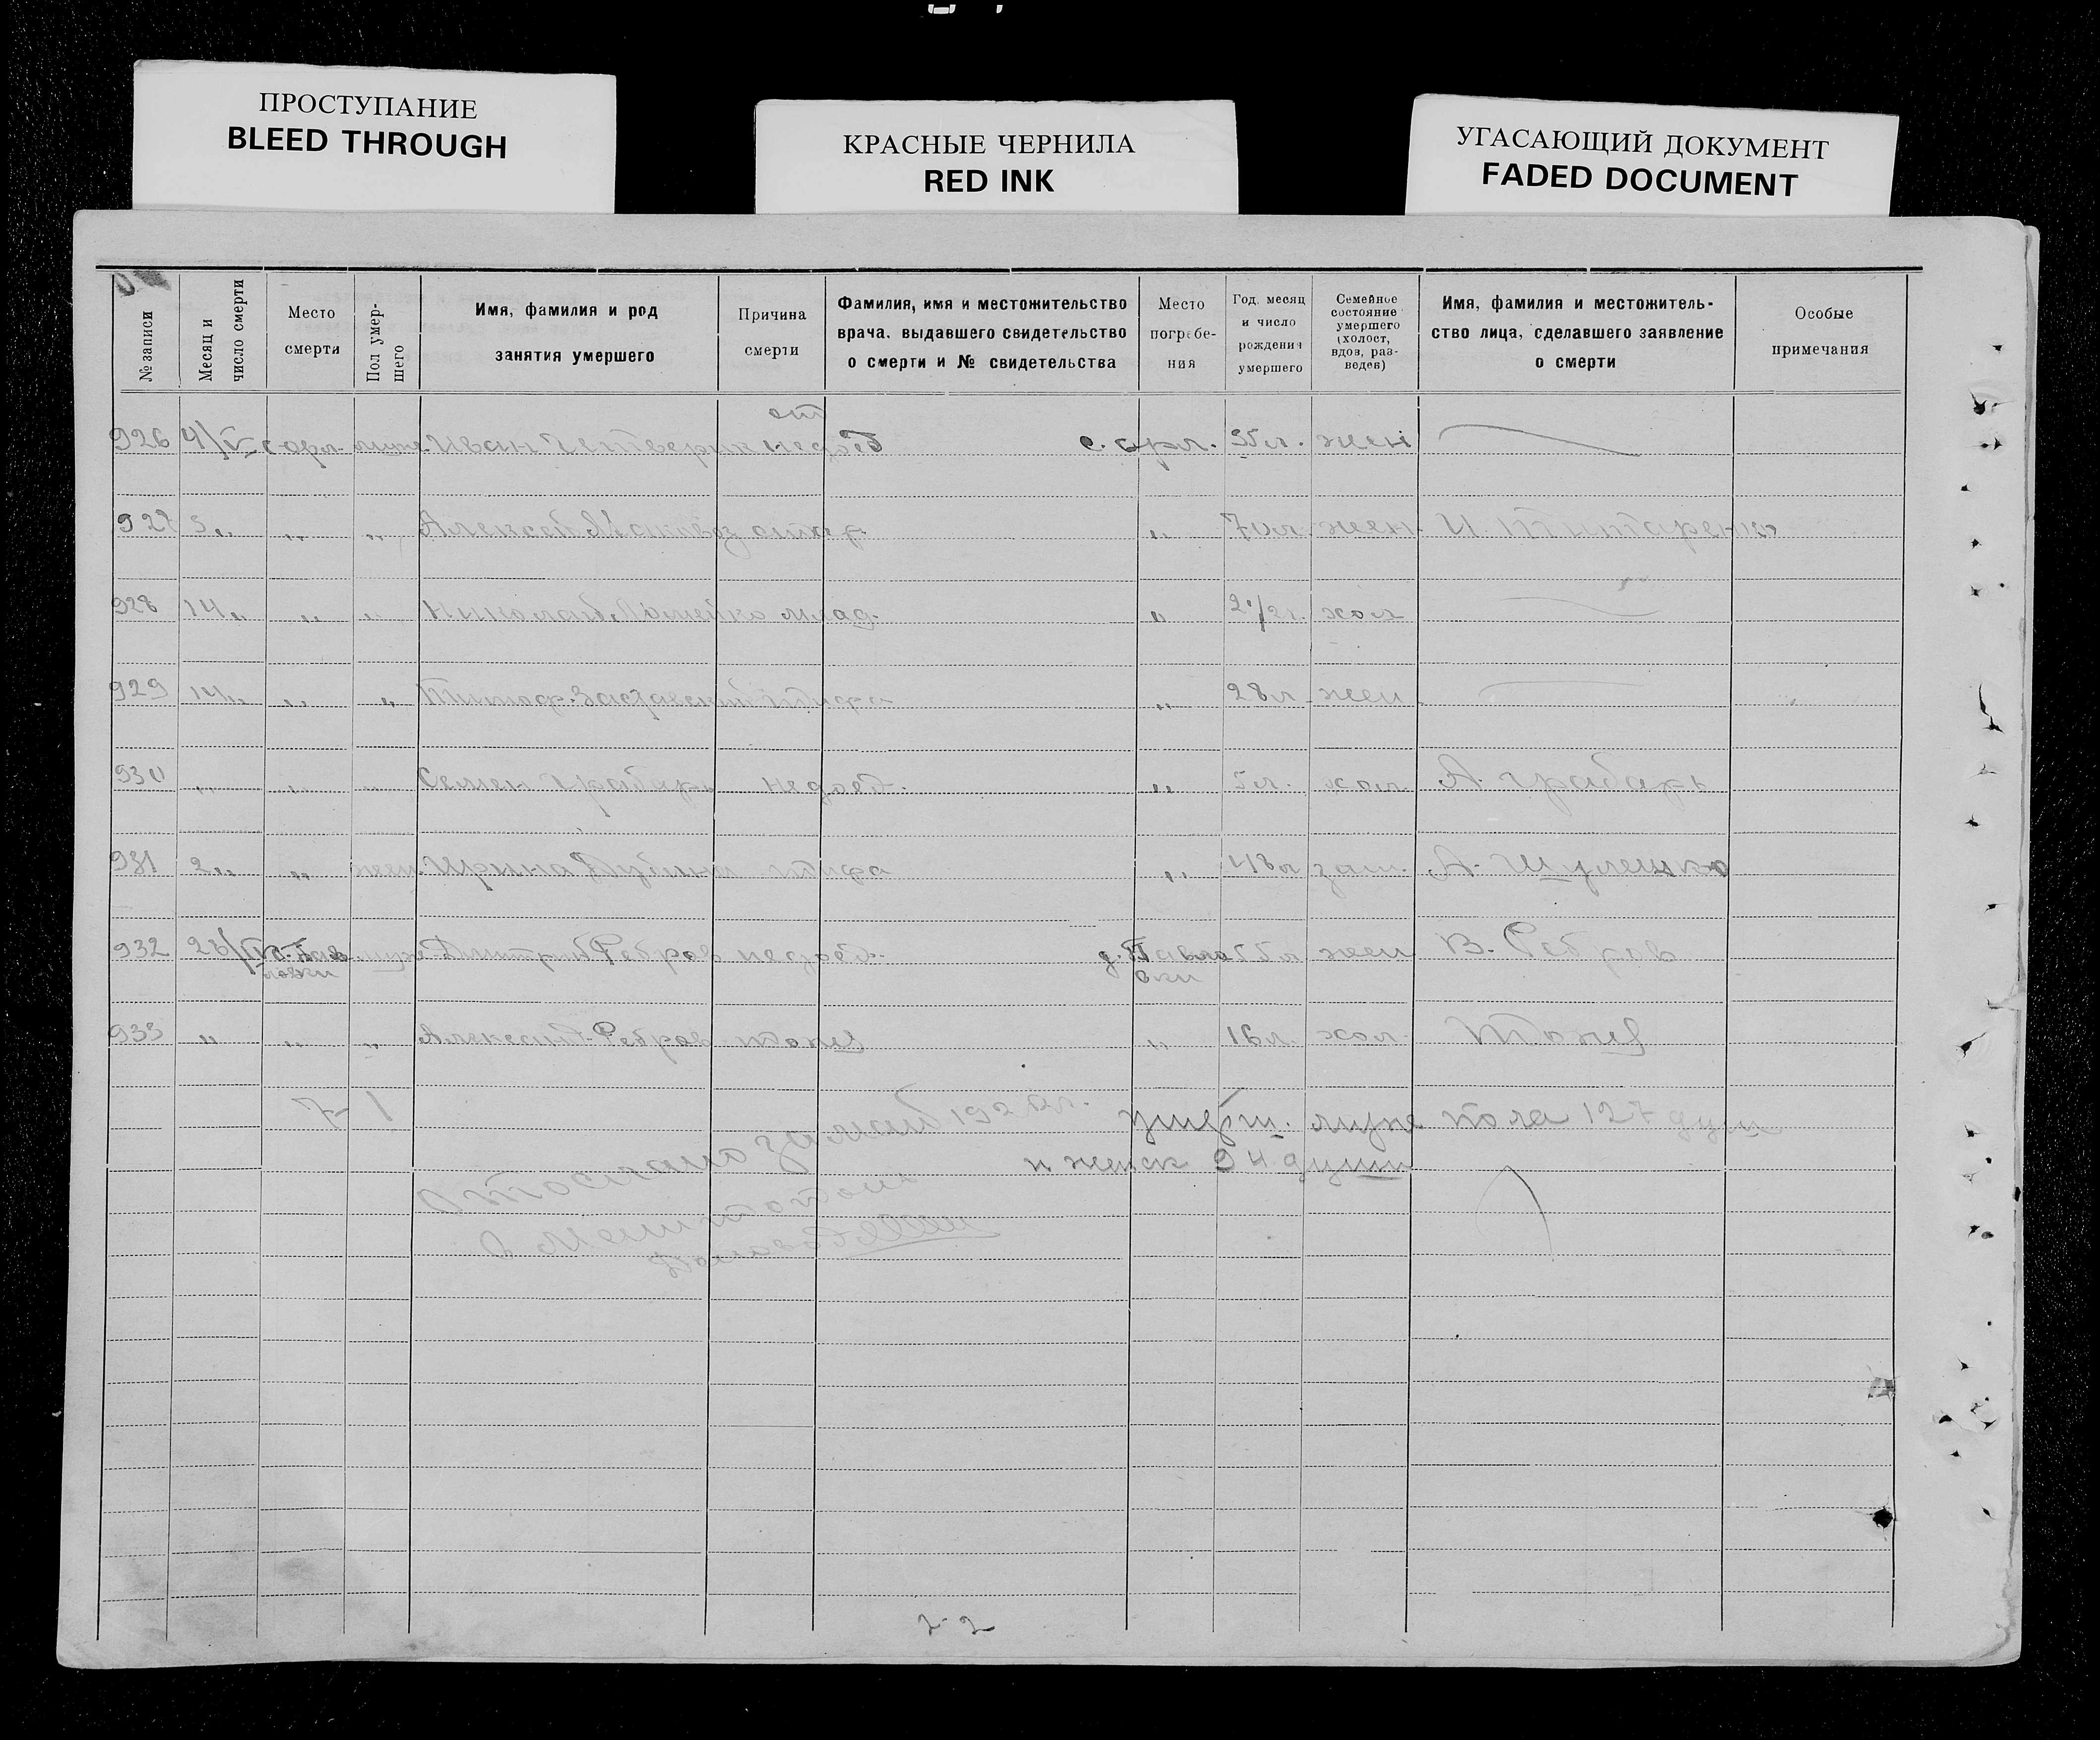 ПРОСТУПАНИЕ
BLEED THROUGH
КРАСНЫЕ ЧЕРНИЛА
RED INK
УГАСАЮЩИЙ ДОКУМЕНТ
FADED DOCUMENT
№ записи
Месяц и
число смерти
Место
смерти
Пол умер-
шего
Имя, фамилия и род
занятия умершего
Причина
смерти
Фамилия, имя и местожительство
врача, выдавшего свидетельство
о смерти и № свидетельства
Место
погребе-
ния
Год, месяц
и число
рождения
умершего
Семейное
состояние
умершего
(холост,
вдов, раз-
веден)
Имя, фамилия и местожитель-
ство лица, сделавшего заявление
о смерти
Особые
примечания
от
926 4/V с орл. муж. Иван Четверик недоед с. орл. 35л. жен
927 3 „ „ „ Алексей „ 70л. жен. И. Титаренко
928 14 „ „ „ Николай млад. „ хол
929 14 „ „ „ Тимоф. Заставский тифа „ 28л. жен.
930 „ „ „ Семен Грабарь недоед. „ 5л. хол. А. Грабарь
931 2 „ „ жен. Ирина тифа „ 48л зам. А. Шулешко
932 д. Пав муж. Дмитрий Ребров недоед. д. Павло жен В. Ребров
ловки вки
933 „ „ „ Алексей Ребров тоже „ 16л. хол. Тоже
7 - 1
умерш. муж пола 127 душ
и женск 94 душ
Отослано за май 1922 г.
2-2